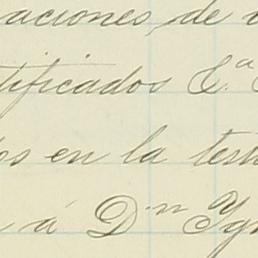 aciones, de
tificados E.ª
os en la test
á Dⁿ Yg